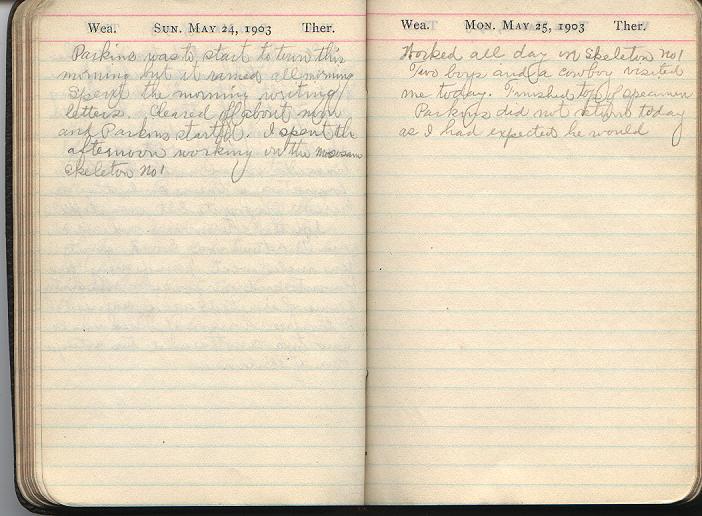 Wea. SUN. MAY 24, 1903 Ther.
Parkins was to start to town this
morning but it rained all morning
Spent the morning writing
letters. Cleared off about noon
and Parkins started. I spent the
afternoon working on the
skeleton no 1
Wea. MON. MAY 25, 1903 Ther.
Worked all day on skeleton no 1
Two boys and a cowboy visited
me today. Finished top of specimen
Parkins did not return today
as I had expected he would